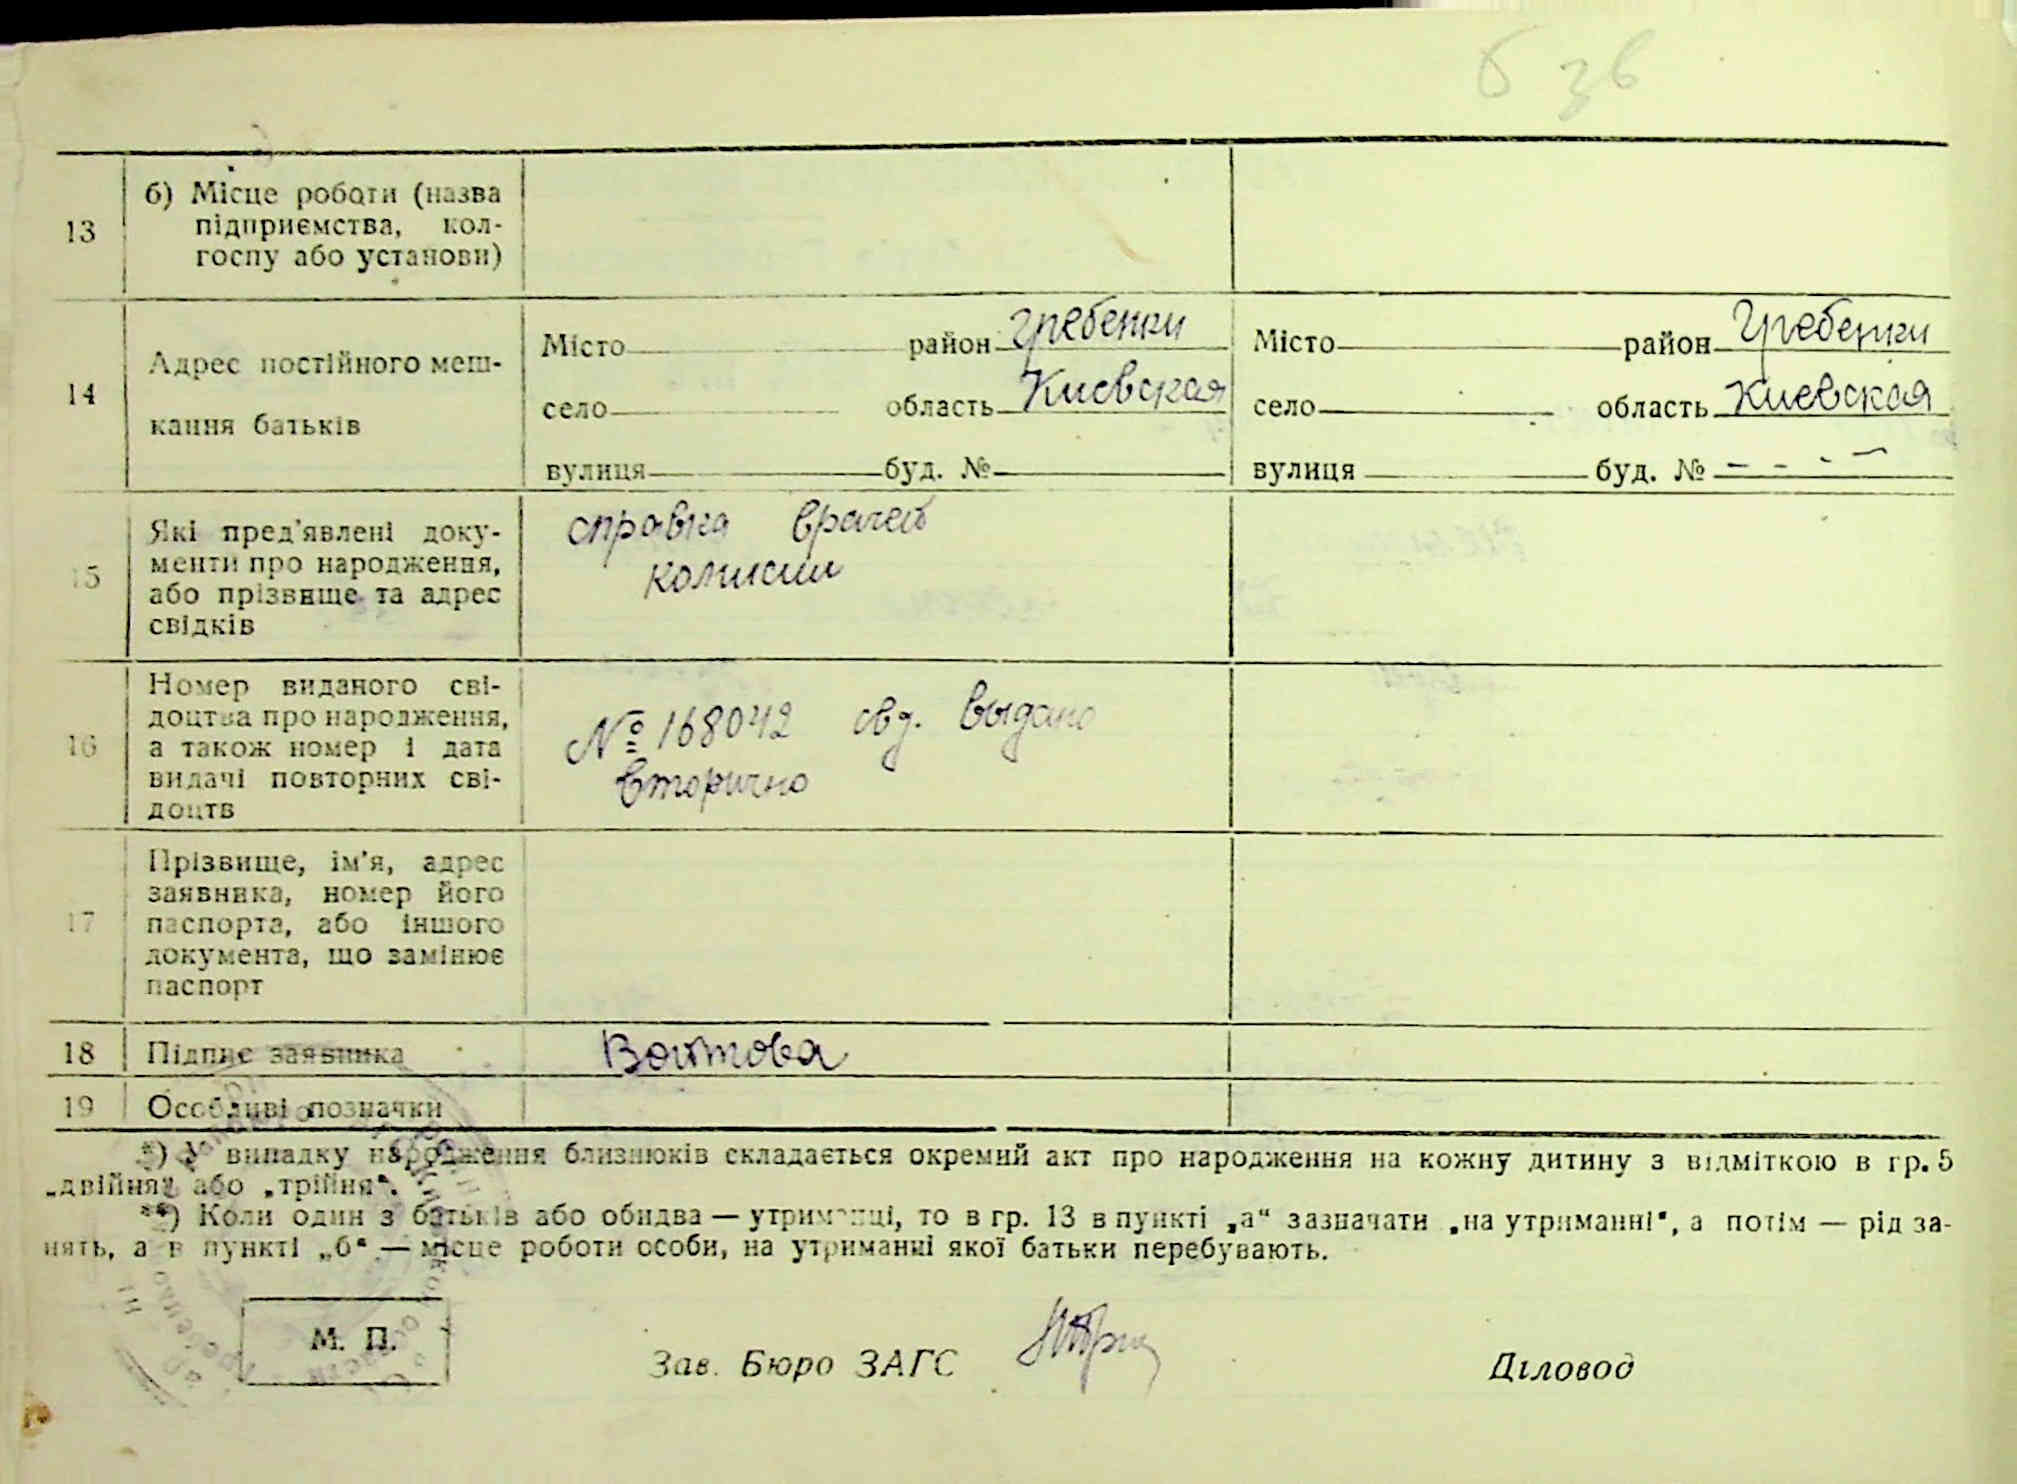 б зв
13
б) Місце роботи (назва
підприємства, кол-
госпу або установи)
14
Адрес постійного меш-
кання батьків
Місто район Гребенки
село область Киевская
вулиця буд. №
Місто район Гребенки
село область Киевская
вулиця буд. № - - - -
15
Які пред'явлені доку-
менти про народження,
або прізвище та адрес
свідків
справка врачей
комисии
16
Номер виданого сві-
доцтва про народження,
а також номер і дата
видачі повторних сві-
доцтв
№ 168042 свд. выдано
вторично
17
Прізвище, ім'я, адрес
заявника, номер його
паспорта, або іншого
документа, що замінює
паспорт
18
Підпис заявника
Войтова
19
Особливі позначки
*) У випадку народження близнюків складається окремий акт про народження на кожну дитину з відміткою в гр. 5
„двійня" або „трійня".
**) Коли один з батьків або обидва — утриманці, то в гр. 13 в пункті „а" зазначати „на утриманні", а потім — рід за-
нять, а в пункті „б" — місце роботи особи, на утриманні якої батьки перебувають.
М. П.
Зав. Бюро ЗАГС
Діловод